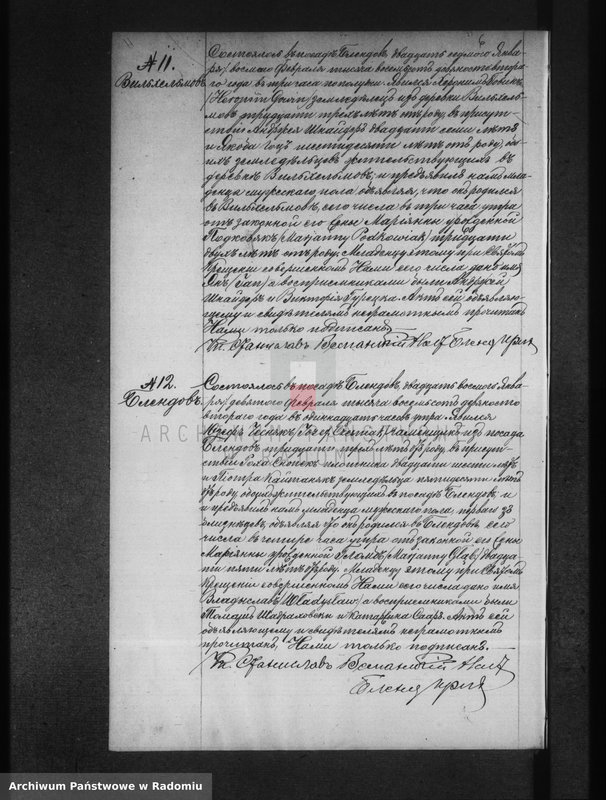 № 11.
Вильгельмовъ
Состоялось въ посадѣ Блендовъ двадцать седьмого Янва-
ря/восьмого Февраля тысяча восемьсотъ девяносто втора-
го года въ три часа по полудни. Явился Іеронимъ
/Hieronim / земледѣлецъ изъ деревни Вильгель-
мовъ тридцати трехъ лѣтъ отъ роду, въ присут-
ствіи Андрея Шнайдеръ двадцати семи лѣтъ
и Якова Гоцъ шестидесяти лѣтъ отъ роду, обо-
ихъ земледѣльцовъ жительствующихъ въ
деревнѣ Вильгельмовъ; и предъявилъ намъ мла-
денца мужескаго пола объявляя, что онъ родился
въ Вильгельмовѣ, сего числа въ три часа утра
отъ законной его жены Маріянны урожденной
Подковякъ /Maryanny Podkowiak/ тридцати
двухъ лѣтъ отъ роду; Младенцу этому при Святомъ
Крещеніи совершенномъ Нами сего числа дано имя
Янъ /Jan/ а воспріемниками были Андрей
Шнайдеръ и Викторія Гурецка. Актъ сей объявляю-
щему и свидѣтелямъ неграмотнымъ прочитанъ
Нами только подписанъ.
Кс. Станиславъ
№ 12.
Блендовъ.
Состоялось въ посадѣ Блендовъ, двадцать восьмого Янва-
ря/девятого Февраля тысяча восемьсотъ девяносто
второго года въ одиннадцать часовъ утра. Явился
Іозефъ Чеснякъ /Józef Cieśniak/ каменщикъ изъ посада
Блендовъ тридцати трехъ лѣтъ отъ роду, въ присут-
ствіи плотника двадцати шести лѣтъ
и Петра земледѣльца пятидесяти лѣтъ
отъ роду, обоихъ жительствующихъ въ посадѣ Блендовъ, и
и предъявилъ намъ младенца мужескаго пола, первый изъ
близнецовъ, объявляя что онъ родился въ Блендовѣ сего
числа въ четыре часа утра отъ законной его жены
Маріянны урожденной Гломбъ /Maryanny Głąb/ двадца-
ти пяти лѣтъ отъ роду. Младенцу этому при Святомъ
Крещеніи совершенномъ Нами сего числа дано имя
Владыславъ /Władysław/ а воспріемниками были
и Катаржина Актъ сей
объявляющему и свидѣтелямъ неграмотнымъ
прочитанъ, Нами только подписанъ.
Кс. Станиславъ
ARCHIWUM PAŃSTWOWE
W RADOMIU
Archiwum Państwowe w Radomiu